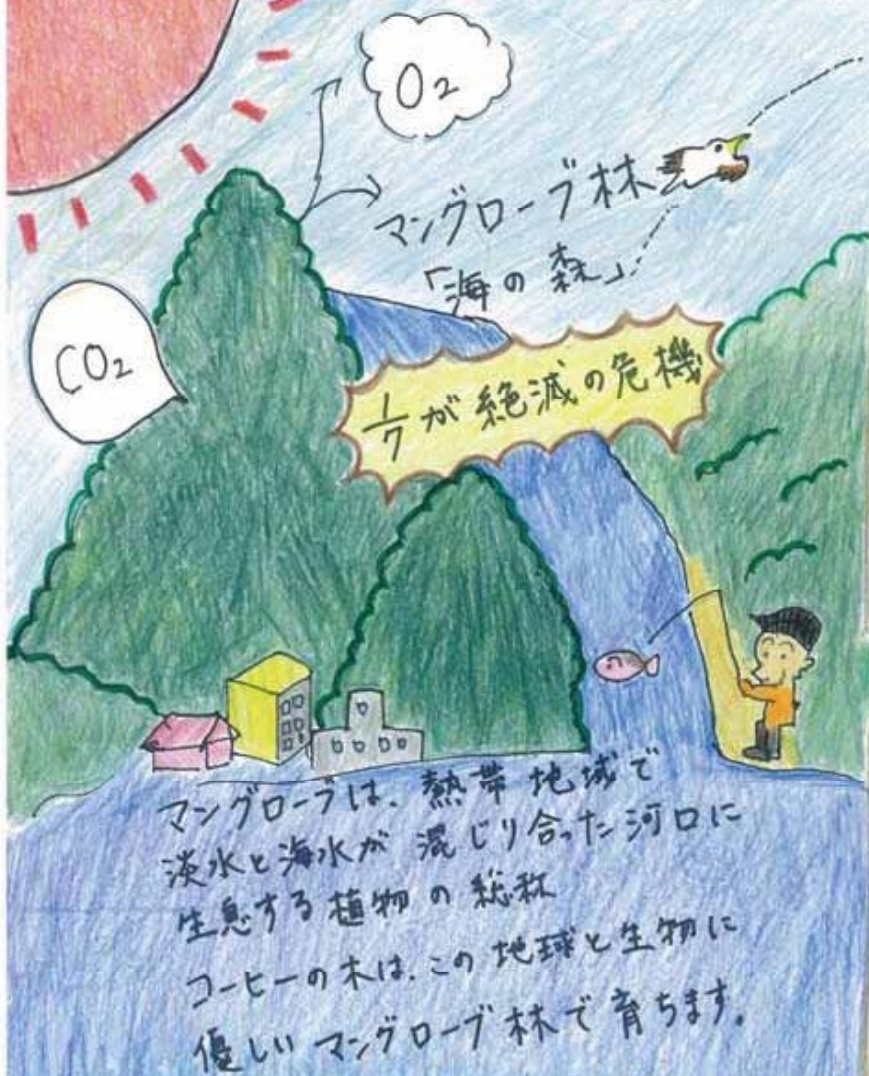 O₂
マングローブ林
「海の森」
CO₂
1/7が絶滅の危機
マングローブは、熱帯地域で
淡水と海水が混じり合った河口に
生息する植物の総称
コーヒーの木は、この地球と生物に
優しいマングローブ林で育ちます。